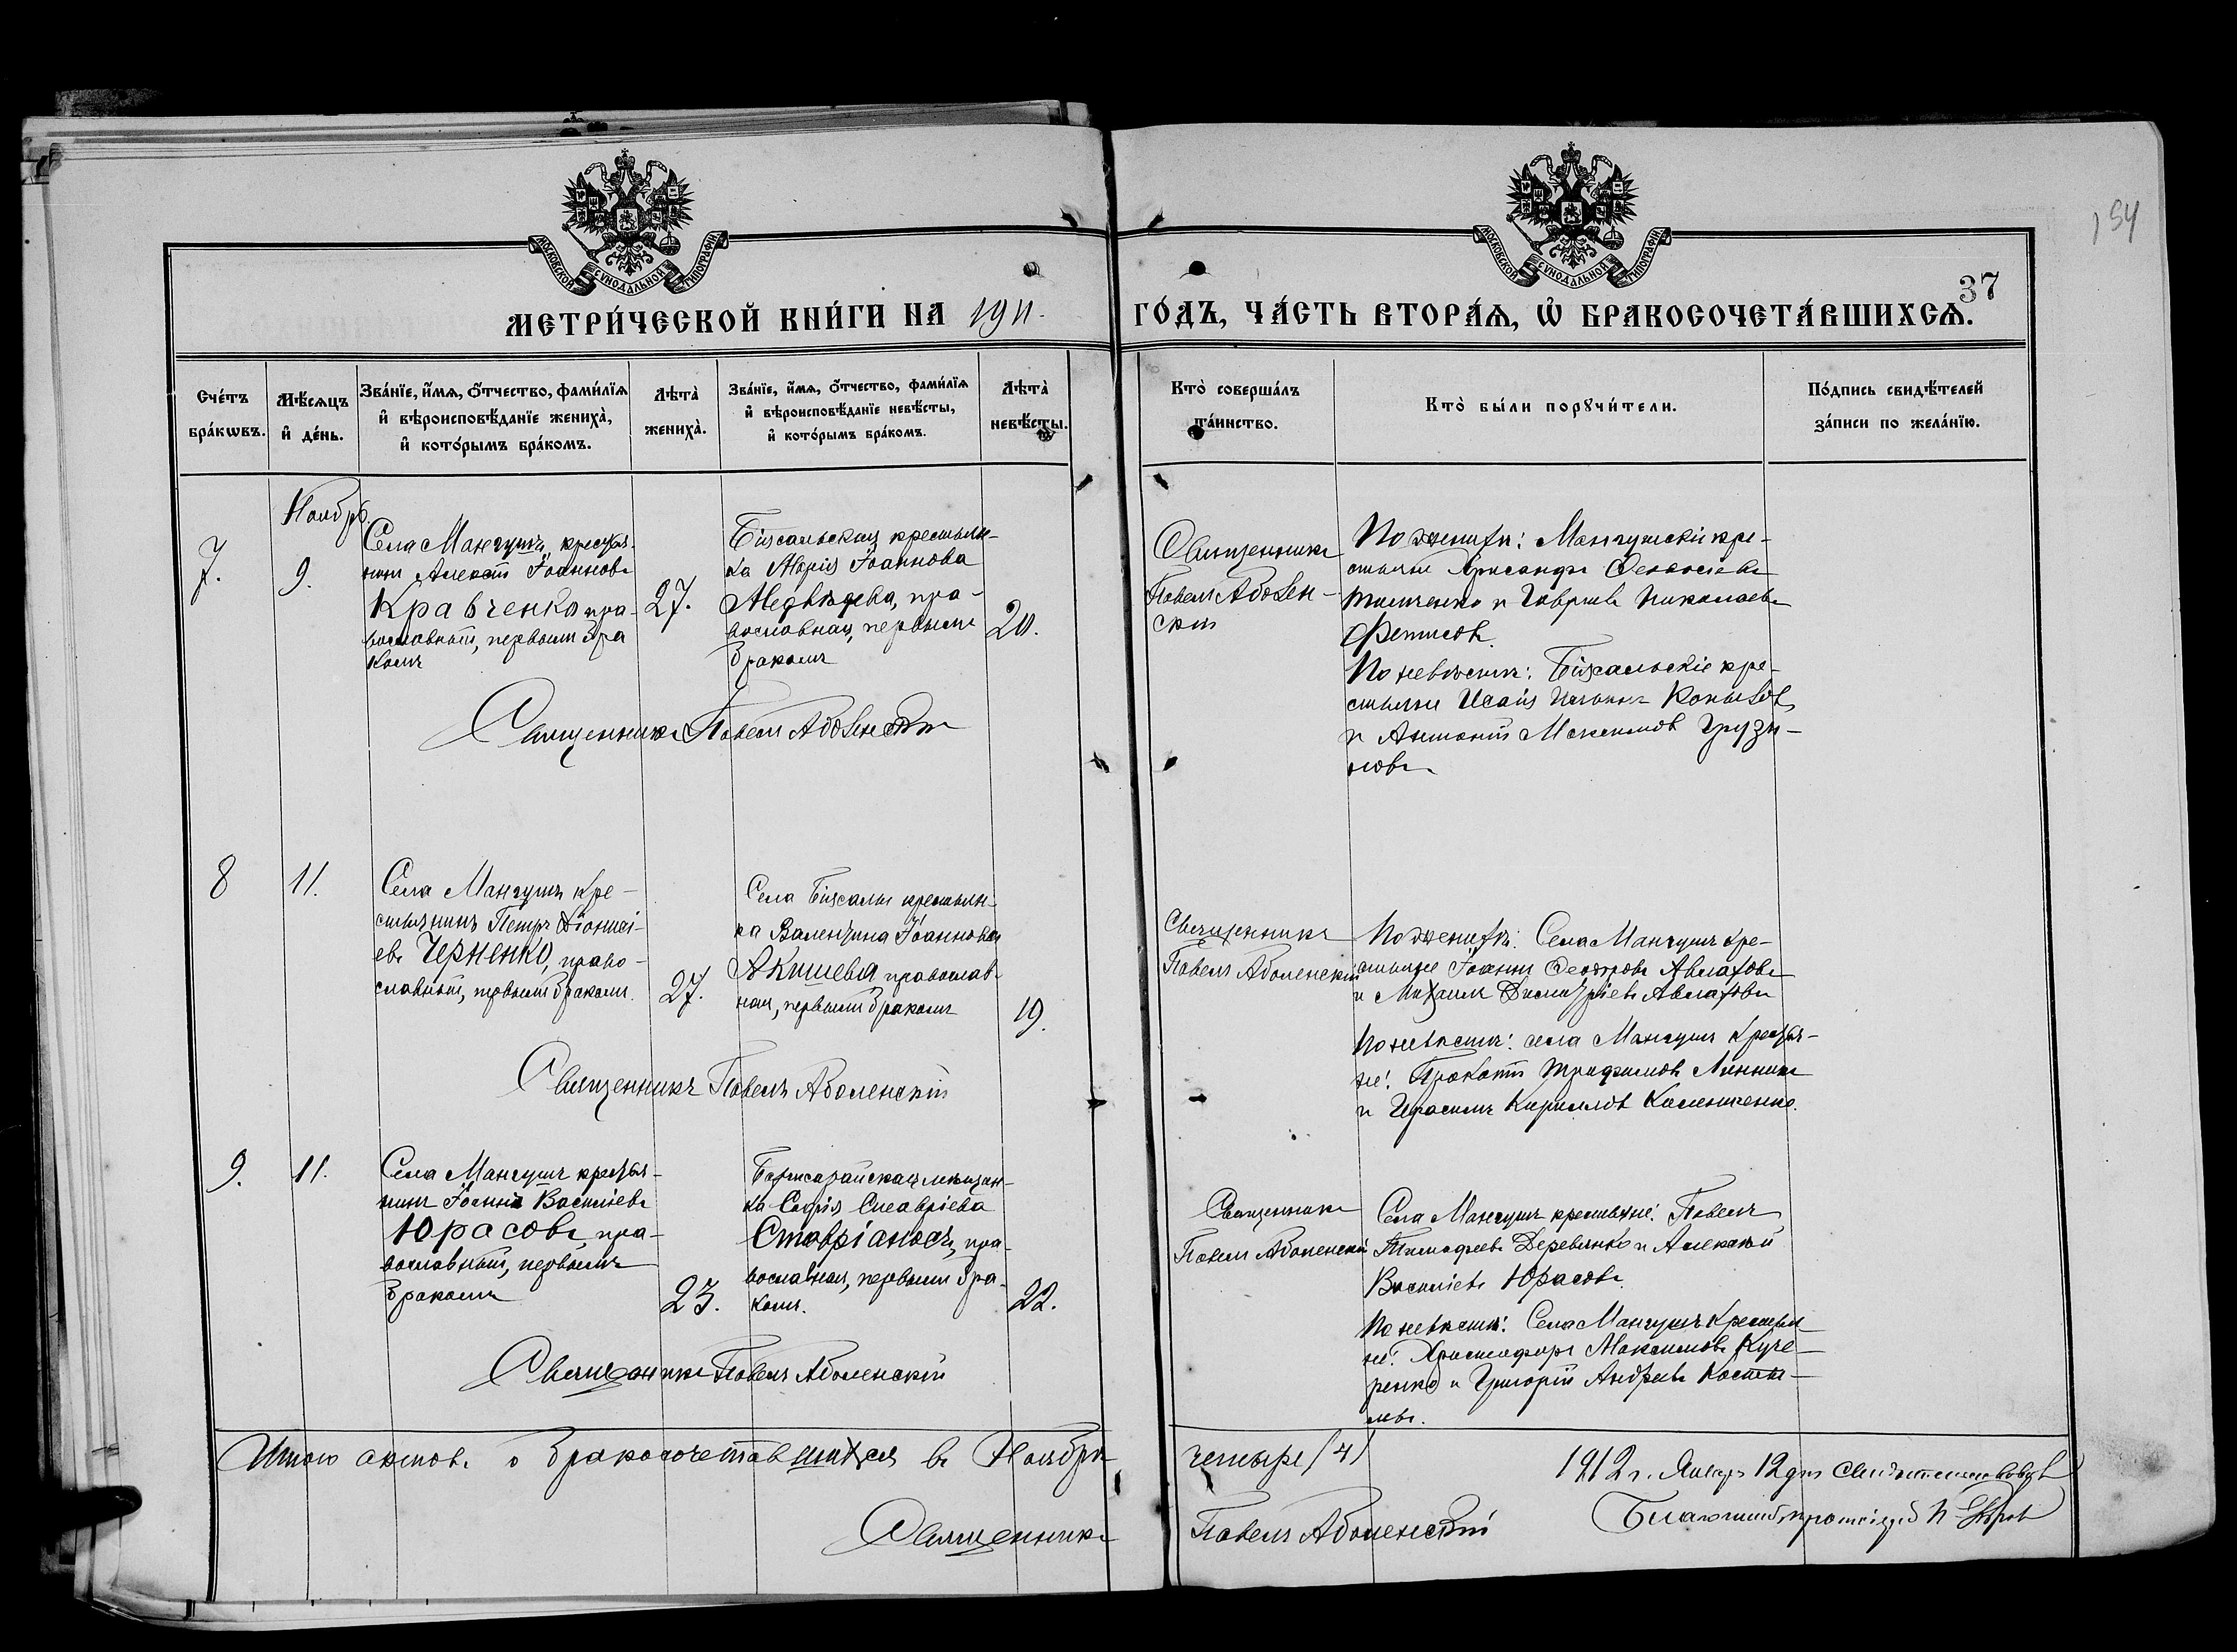 194
37
МОСКОВСКОЙ СѴНОДАЛЬНОЙ ТИПОГРАФІИ
МОСКОВСКОЙ СѴНОДАЛЬНОЙ ТИПОГРАФІИ
МЕТРИ́ЧЕСКОЙ КНИ́ГИ НА 1911.
ГО́ДЪ, ЧА́СТЬ ВТОРА́Я, Ѡ БРАКОСОЧЕТА́ВШИХСЯ.
Сче́тъ бра́кѡвъ.
Мѣ́сяцъ и҆ де́нь.
Зва́нїе, и҆́мѧ, ѻ҆́тчество, фами́лїѧ
и҆ вѣроисповѣ́данїе жениха̀,
и҆ кото́рымъ бра́комъ.
Лѣта̀ жениха̀.
Зва́нїе, и҆́мѧ, ѻ҆́тчество, фами́лїѧ
и҆ вѣроисповѣ́данїе невѣ́сты,
и҆ кото́рымъ бра́комъ.
Лѣта̀ невѣ́сты.
Кто̀ соверша́лъ та́инство.
Кто̀ бы́ли порꙋчи́тели.
По́дпись свидѣ́телей за́писи по жела́нїю.
7.
Ноябрь
9.
Села Мангушъ крестья-
нинъ Алексѣй Іоанновъ
Кравченко, пра-
вославный, первымъ бра
комъ
27.
Біясальская крестьян-
ка Марія Іоаннова
Медвѣдева, пра-
вославная, первымъ
бракомъ
20.
Священникъ
Павелъ Аболен-
скій
По женихѣ: Мангушскіе кре-
стьяне
и Гавріилъ Николаевъ
Фетисовъ.
По невѣстѣ: Біясальскіе кре-
стьяне Исаія
и Антоній Максимовъ Грузи-
новъ
Священникъ Павелъ Аболенскій
8
11.
Села Мангушъ кре-
стьянинъ Петръ Діонисі-
евъ Черненко, право-
славный, первымъ бракомъ.
27.
Села Біясалы крестьян-
ка Валентина Іоаннова
Акишева, православ-
ная, первымъ бракомъ
19.
Священникъ
Павелъ Аболенскій
По женихѣ: Села Мангушъ кре-
стьяне Іоаннъ Феодоровъ Авлаховъ
и Михаилъ Димитріевъ Авлаховъ
По невѣстѣ: села Мангушъ крестья-
не: Прокопій Трифимовъ Линникъ
и Герасимъ Кирилловъ
Священникъ Павелъ Аболенскій
9.
11.
Села Мангушъ крестья-
нинъ Іоаннъ Васильевъ
Юрасовъ, пра-
вославный, первымъ
бракомъ
23.
Бахчисарайская мѣщан-
ка Софія
Ставріаносъ, пра-
вославная, первымъ бра-
комъ.
22.
Священникъ
Павелъ Аболенскій
Села Мангушъ крестьяне: Павелъ
Тимофеевъ Деревянко и Алексѣй
Васильевъ Юрасовъ.
По невѣстѣ: Села Мангушъ крестья
не: Христофоръ Максимовъ Куче-
ренко и Григорій Андреевъ
Священникъ Павелъ Аболенскій
Итого актовъ о бракосочетавшихся въ Ноябрѣ
четыре (4)
Священникъ
Павелъ Аболенскій
1912 г. Январь 12 дня